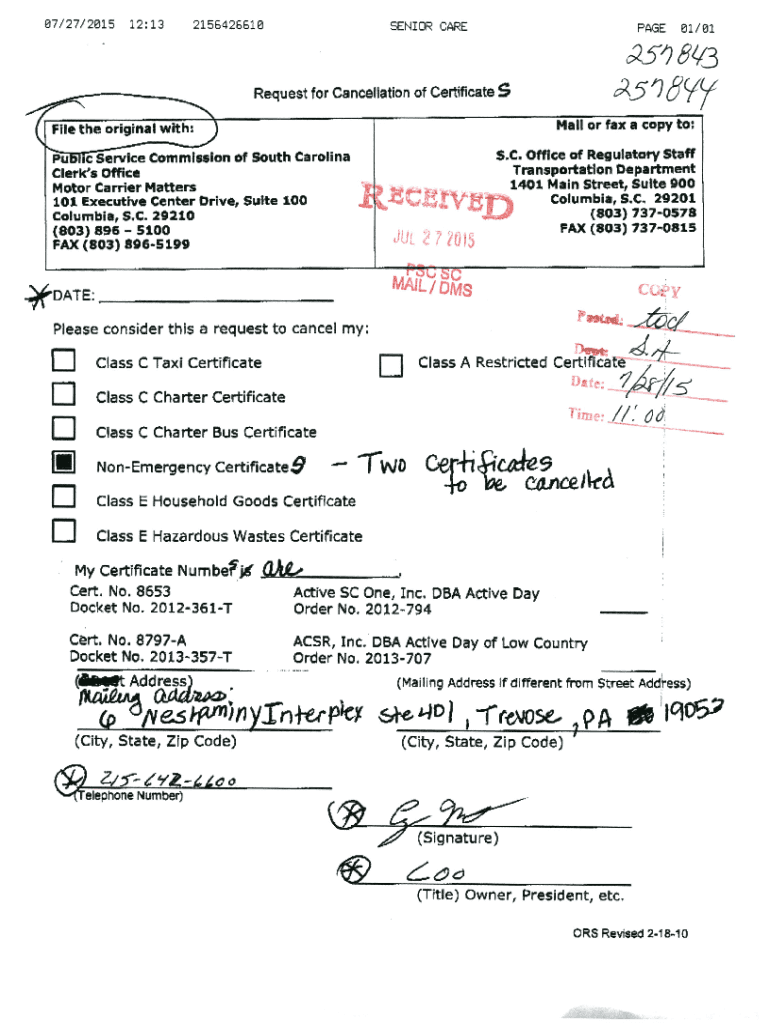 07/27/2015 12:13 2156426610 SENIOR CARE PAGE 01/01
257843
257844
Request for Cancellation of Certificate S
File the original with:
Public Service Commission of South Carolina
Clerk's Office
Motor Carrier Matters
101 Executive Center Drive, Suite 100
Columbia, S.C. 29210
(803) 896 – 5100
FAX (803) 896-5199
Mail or fax a copy to:
S.C. Office of Regulatory Staff
Transportation Department
1401 Main Street, Suite 900
Columbia, S.C. 29201
(803) 737-0578
FAX (803) 737-0815
RECEIVED
JUL 27 2015
PSC SC
MAIL / DMS
COPY
Posted: tod
Dept: S.A
Date: 7/28/15
Time: 11:00
DATE:
Please consider this a request to cancel my:
Class C Taxi Certificate
Class A Restricted Certificate
Class C Charter Certificate
Class C Charter Bus Certificate
Non-Emergency Certificate s – Two Certificates
to be cancelled
Class E Household Goods Certificate
Class E Hazardous Wastes Certificate
My Certificate Number s is are
Cert. No. 8653 Active SC One, Inc. DBA Active Day
Docket No. 2012-361-T Order No. 2012-794
Cert. No. 8797-A ACSR, Inc. DBA Active Day of Low Country
Docket No. 2013-357-T Order No. 2013-707
t Address) (Mailing Address if different from Street Address)
Mailing address:
6 Neshaminy Interplex Ste 401, Trevose, PA 19053
(City, State, Zip Code) (City, State, Zip Code)
215-642-6600
(Telephone Number)
(Signature)
COO
(Title) Owner, President, etc.
ORS Revised 2-18-10